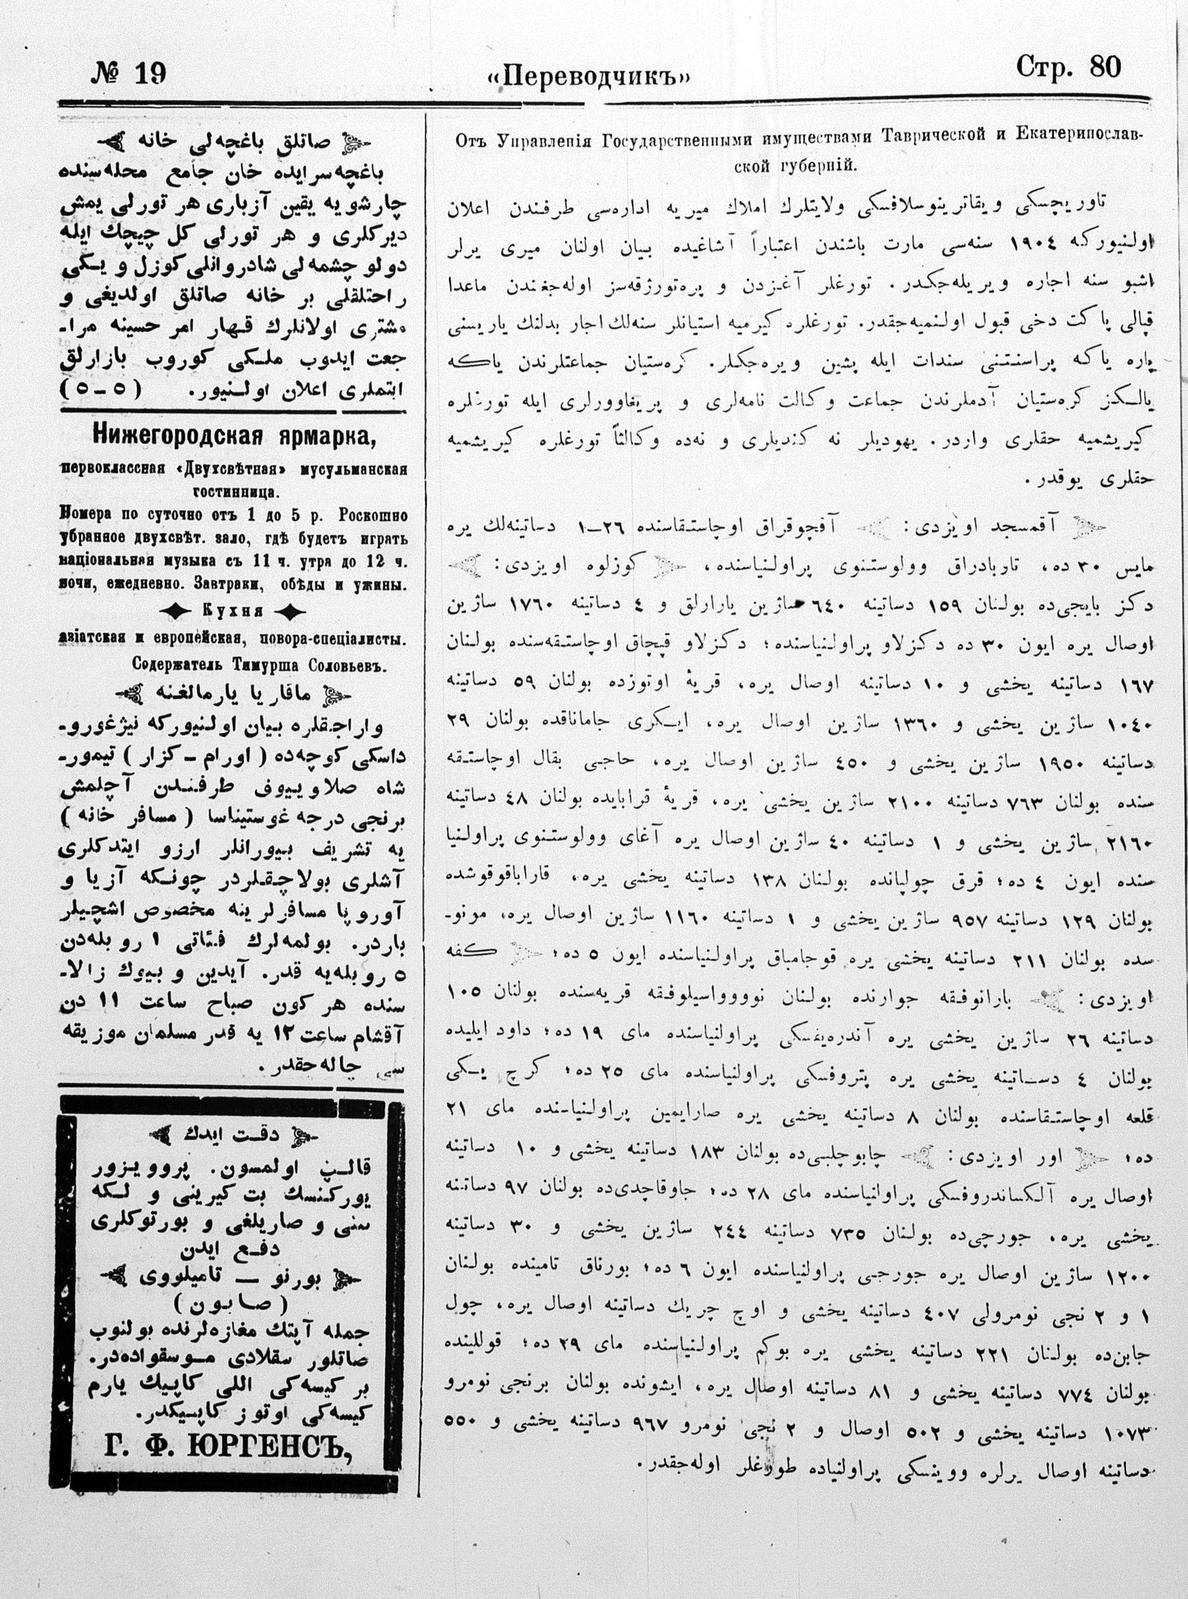 № 19
«Переводчикъ»
Стр. 80
صاتلق باغچه‌لی خانه
باغچه سرایده خان جامع محله‌سنده
چارشویه یقین آزباری هر تورلی یمش
دیرکلری و هر تورلی کل چیچك ایله
دولو چشمه‌لی شادروانلی کوزل و یکی
راحتلقلی بر خانه صاتلق اولدیغی و
مشتری اولانلرك قهار امر حسینه مرا-
جعت ایدوب ملکی کوروب بازارلق
ایتملری اعلان اولنیور. (٥–٥)
Нижегородская ярмарка,
первоклассная «Двухсвѣтная» мусульманская
гостинница.
Номера по суточно отъ 1 до 5 р. Роскошно
убранное двухсвѣт. зало, гдѣ будетъ играть
національная музыка съ 11 ч. утра до 12 ч.
ночи, ежедневно. Завтраки, обѣды и ужины.
Кухня
азіатская и европейская, повора-спеціалисты.
Содержатель Тимурша Соловьевъ.
ماقاریا یارمالغنه
واراجقلره بیان اولنیورکه نیژغورو-
داسکی کوچه‌ده (اورام – کزار) تیمور-
شاه صلاوییوف طرفندن آچلمش
برنجی درجه غوستیناسا (مسافر خانه)
یه تشریف بیورانلر ارزو ایتدکلری
آشلری بولاچقلردر چونکه آزیا و
آوروپا مسافرلرینه مخصوص اشچیلر
باردر. بولمه‌لرك فئاتی ١ روبله‌دن
٥ روبله‌یه قدر. آیدین و بیوك زالا-
سنده هر کون صباح ساعت ١١ دن
آقشام ساعت ١٢ یه قدر مسلمان موزیقه
سی چاله‌جقدر.
دقت ایدك
قالپ اولمسون. پروویزور
یورکنسك بت کیرینی و لکه
سنی و صاریلغی و بورتوکلری
دفع ایدن
بورنو – تامیلووی
(صابون)
جمله آپتك مغازه‌لرنده بولنوب
صاتلور سقلادی موسقواده‌در.
بر کیسه‌کی اللی کاپیك یارم
کیسه‌کی اوتوز کاپیکدر.
Г. Ф. ЮРГЕНСЪ,
Отъ Управленія Государственными имуществами Таврической и Екатеринослав-
ской губерній.
تاوریچسکی و یقاترینوسلافسکی ولایتلرك املاك میریه اداره‌سی طرفندن اعلان
اولنیورکه ١٩٠٤ سنه‌سی مارت باشندن اعتباراً آشاغیده بیان اولنان میری یرلر
اشبو سنه اجاره ویریله‌جکدر. تورغلر آغزدن و پره‌تورژقه‌سز اوله‌جغندن ماعدا
قپالی پاکت دخی قبول اولنمیه‌جقدر. تورغلره کیرمیه استیانلر سنه‌لك اجار بدلنك یاریسنی
پاره یاکه پراسنتنی سندات ایله پشین ویره‌جکلر. کره‌ستیان جماعتلرندن یاکه
یالکز کره‌ستیان آدملرندن جماعت وکالت نامه‌لری و پریغاوورلری ایله تورغلره
کیریشمیه حقلری واردر. یهودیلر نه کندیلری و نه‌ده وکالتاً تورغلره کیریشمیه
حقلری یوقدر.
آقمسجد اویزدی: آقچوقراق اوچاستقاسنده ٢٦–١ دساتینه‌لك یره
مایس ٣٠ ده، تاربادراق وولوستنوی پراولنیاسنده، کوزلوه اویزدی:
دکز بایجی‌ده بولنان ١٥٩ دساتینه ٦٤٠ ساژین یارارلق و ٤ دساتینه ١٧٦٠ ساژین
اوصال یره ایون ٣٠ ده دکزلاو پراولنیاسنده؛ دکزلاو قپچاق اوچاستقه‌سنده بولنان
١٦٧ دساتینه یخشی و ١٠ دساتینه اوصال یره، قریهٔ اوتوزده بولنان ٥٩ دساتینه
١٠٤٠ ساژین یخشی و ١٣٦٠ ساژین اوصال یره، ایکری جاماناقده بولنان ٢٩
دساتینه ١٩٥٠ ساژین یخشی و ٤٥٠ ساژین اوصال یره، حاجی بقال اوچاستقه
سنده بولنان ٧٦٣ دساتینه ٢١٠٠ ساژین یخشی یره، قریهٔ قرابایده بولنان ٤٨ دساتینه
٢١٦٠ ساژین یخشی و ١ دساتینه ٤٠ ساژین اوصال یره آغای وولوستنوی پراولنیا
سنده ایون ٤ ده؛ قرق چولپانده بولنان ١٣٨ دساتینه یخشی یره، قاراباقوقوشده
بولنان ١٢٩ دساتینه ٩٥٧ ساژین یخشی و ١ دساتینه ١١٦٠ ساژین اوصال یره، مونو-
سده بولنان ٢١١ دساتینه یخشی یره قوجامباق پراولنیاسنده ایون ٥ ده؛ کفه
اویزدی: بارانوفقه جوارنده بولنان نوووواسیلوفقه قریه‌سنده بولنان ١٠٥
دساتینه ٢٦ ساژین یخشی یره آندره‌یفسکی پراولنیاسنده مای ١٩ ده؛ داود ایلیده
بولنان ٤ دساتینه یخشی یره پتروفسکی پراولنیاسنده مای ٢٥ ده؛ کرچ یکی
قلعه اوچاستقاسنده بولنان ٨ دساتینه یخشی یره صارایمین پراولنیاسنده مای ٢١
ده؛ اور اویزدی: چابوچلبی‌ده بولنان ١٨٣ دساتینه یخشی و ١٠ دساتینه
اوصال یره آلکساندروفسکی پراولنیاسنده مای ٢٨ ده؛ جاوقاچدی‌ده بولنان ٩٧ دساتینه
یخشی یره، جورچی‌ده بولنان ٧٣٥ دساتینه ٢٤٤ ساژین یخشی و ٣٠ دساتینه
١٢٠٠ ساژین اوصال یره جورجی پراولنیاسنده ایون ٦ ده؛ بورناق تامینده بولنان
١ و ٢ نجی نومرولی ٤٠٧ دساتینه یخشی و اوچ چریك دساتینه اوصال یره، چول
جاین‌ده بولنان ٢٢١ دساتینه یخشی یره بوکم پراولنیاسنده مای ٢٩ ده؛ قوللینده
بولنان ٧٧٤ دساتینه یخشی و ٨١ دساتینه اوصال یره، ایشونده بولنان برنجی نومرو
١٠٧٣ دساتینه یخشی و ٥٠٢ اوصال و ٢ نجی نومرو ٩٦٧ دساتینه یخشی و ٥٥٠
دساتینه اوصال یرلره ووینسکی پراولنیاده طورغلر اوله‌جقدر.